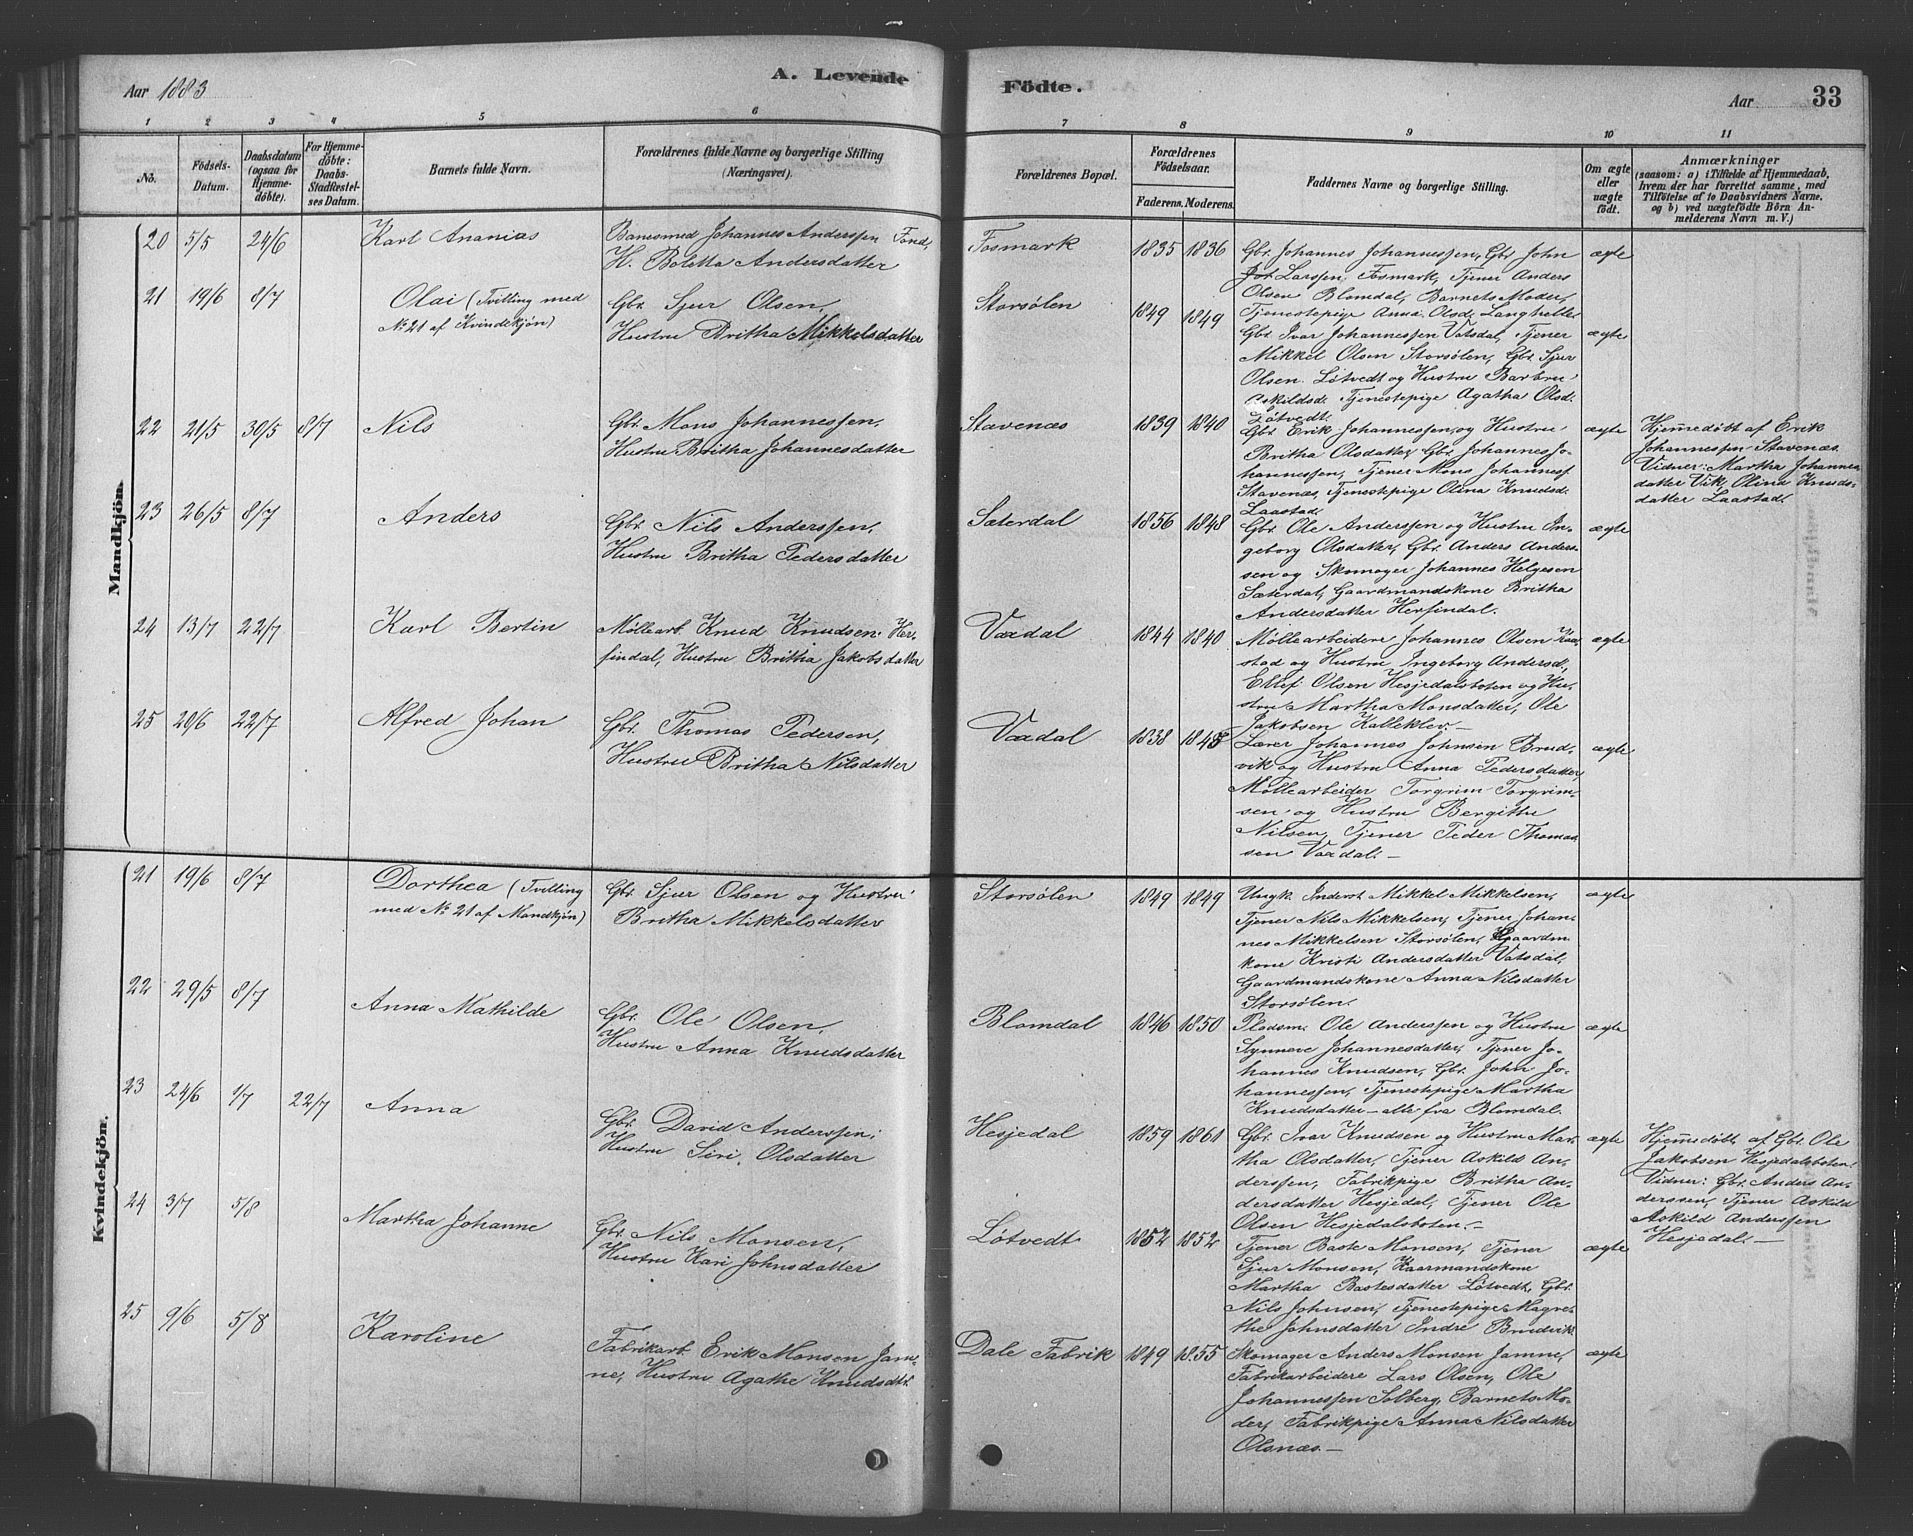 Aar 1883
A. Levende
Födte.
Aar
33
1 2 3 4 5 6 7 8 9 10 11
No.
Födsels-
Datum.
Daabsdatum
(ogsaa for
Hjemme-
döbte).
For Hjemme-
döbte:
Daabs-
Stadfæstel-
ses Datum.
Barnets fulde Navn.
Forældrenes fulde Navne og borgerlige Stilling
(Næringsvei).
Forældrenes Bopæl.
Forældrenes
Födselsaar.
Faderens. Moderens.
Faddernes Navne og borgerlige Stilling.
Om ægte
eller
uægte
födt.
Anmærkninger
(saasom: a) i Tilfælde af Hjemmedaab,
hvem der har forrettet samme, med
Tilföielse af to Daabsvidners Navne,
og b) ved uægtefödte Börn An-
melderens Navn m. V.)
Mandkjön.
20 5/5 24/6 Karl Ananias
Banesmed Johannes Anderssen Fond,
H. Boletta Andersdatter
Fosmark 1835 1836
Gbr. Johannes Johannessen, Gbr. John
Larssen Fosmark, Tjener Anders
Olsen Blomdal, Barnets Moder,
Tjenestepige Anna Olsd. Langhelle
ægte
21 19/6 8/7 Olai (Tvilling med
No 21 af Kvindekjøn)
Gbr. Sjur Olsen,
Hustru Britha Mikkelsdatter
Storsølen 1849 1849
Gbr. Ivar Johannessen Vatsdal, Tjener
Mikkel Olsen Storsølen, Gbr. Sjur
Olsen Løtvedt og Hustru Barbru
Askildsd. Tjenestepige Agatha Olsd.
Løtvedt.
ægte
22 21/5 30/5 8/7 Nils
Gbr. Mons Johannessen,
Hustru Britha Johannesdatter
Stavenæs 1839 1840
Gbr. Erik Johannessen, og Hustru
Britha Olsdatter, Gbr. Johannes Jo-
hannessen, Tjener Mons Johanness
Stavenæs, Tjenestepige Olina Knudsd.
Laastad.
ægte
Hjemmedøbt af Erik
Johannessen Stavenæs.
Vidner: Martha Johannes
datter Vik, Olina Knuds-
datter Laastad.
23 26/5 8/7 Anders
Gbr. Nils Anderssen,
Hustru Britha Pedersdatter
Sæterdal 1856 1848
Gbr. Ole Anderssen og Hustru In-
geborg Olsdatter, Gbr. Anders Anders-
sen og Skomager Johannes Helgesen
Sæterdal, Gaardmandskone Britha
Andersdatter Herfindal.
ægte
24 13/7 22/7 Karl Bertin
Møllearb. Knud Knudsen Her-
findal, Hustru Britha Jakobsdatter
Vaadal 1844 1840
Møllearbeidere Johannes Olsen
stad og Hustru Ingeborg Andersd,
Ellef Olsen Hesjedalsboten og Hu-
stru Martha Monsdatter, Ole
Jakobsen Kalleklev.—
ægte
25 20/6 22/7 Alfred Johan
Gbr. Thomas Pedersen,
Hustru Britha Nilsdatter
Vaadal 1838 1845
Lærer Johannes Johnsen Brud-
vik og Hustru Anna Pedersdatter,
Møllearbeider Torgrim Torgrim-
sen og Hustru Bergithe
Nilsen, Tjener Peder Thomas-
sen Vaadal.—
ægte
Kvindekjön.
21 19/6 8/7 Dorthea (Tvilling
med No 21 af Mandkjøn)
Gbr. Sjur Olsen og Hustru
Britha Mikkelsdatter
Storsølen 1849 1849
Ungk. Inderst Mikkel Mikkelsen,
Tjener Nils Mikkelsen, Tjener Johan-
nes Mikkelsen Storsølen, Gaardm.
kone Kristi Andersdatter Vatsdal,
Gaardmandskone Anna Nilsdatter
Storsølen.
ægte
22 29/5 8/7 Anna Mathilde
Gbr. Ole Olsen,
Hustru Anna Knudsdatter
Blomdal 1846 1850
Pladsm. Ole Anderssen og Hustru
Synneve Johannesdatter, Tjener Jo-
hannes Knudsen, Gbr. John Jo-
hannessen, Tjenestepige Martha
Knudsdatter—alle fra Blomdal.
ægte
23 24/6 1/7 22/7 Anna
Gbr. David Anderssen,
Hustru Siri Olsdatter
Hesjedal 1859 1861
Gbr. Ivar Knudsen og Hustru Mar-
tha Olsdatter, Tjener Askild An-
derssen, Fabrikpige Britha An-
dersdatter Hesjedal, Tjener Ole
Olsen Hesjedalsboten.—
ægte
Hjemmedøbt af Gbr. Ole
Jakobsen Hesjedalsboten.
Vidner: Gbr. Anders An-
derssen, Tjener Askild
Askild Anderssen
Hesjedal.—
24 3/7 5/8 Martha Johanne
Gbr. Nils Monsen,
Hustru Kari Johnsdatter
Løtvedt 1852 1852
Tjener Baste Monsen, Tjener
Sjur Monsen, Kaarmandskone
Martha Bastesdatter Løtvedt, Gbr.
Nils Johnsen, Tjenestepige Magre-
the Johnsdatter Indre Brudvik
ægte
25 9/6 5/8 Karoline
Fabrikarb. Erik Monsen Jam-
ne, Hustru Agathe Knudsdtr.
Dale Fabrik 1849 1855
Skomager Anders Monsen Jamne,
Fabrikarbeidere Lars Olsen, Ole
Johannessen Solberg, Barnets Mo-
der, Fabrikpige Anna Nilsdatter
Olsnæs.—
ægte